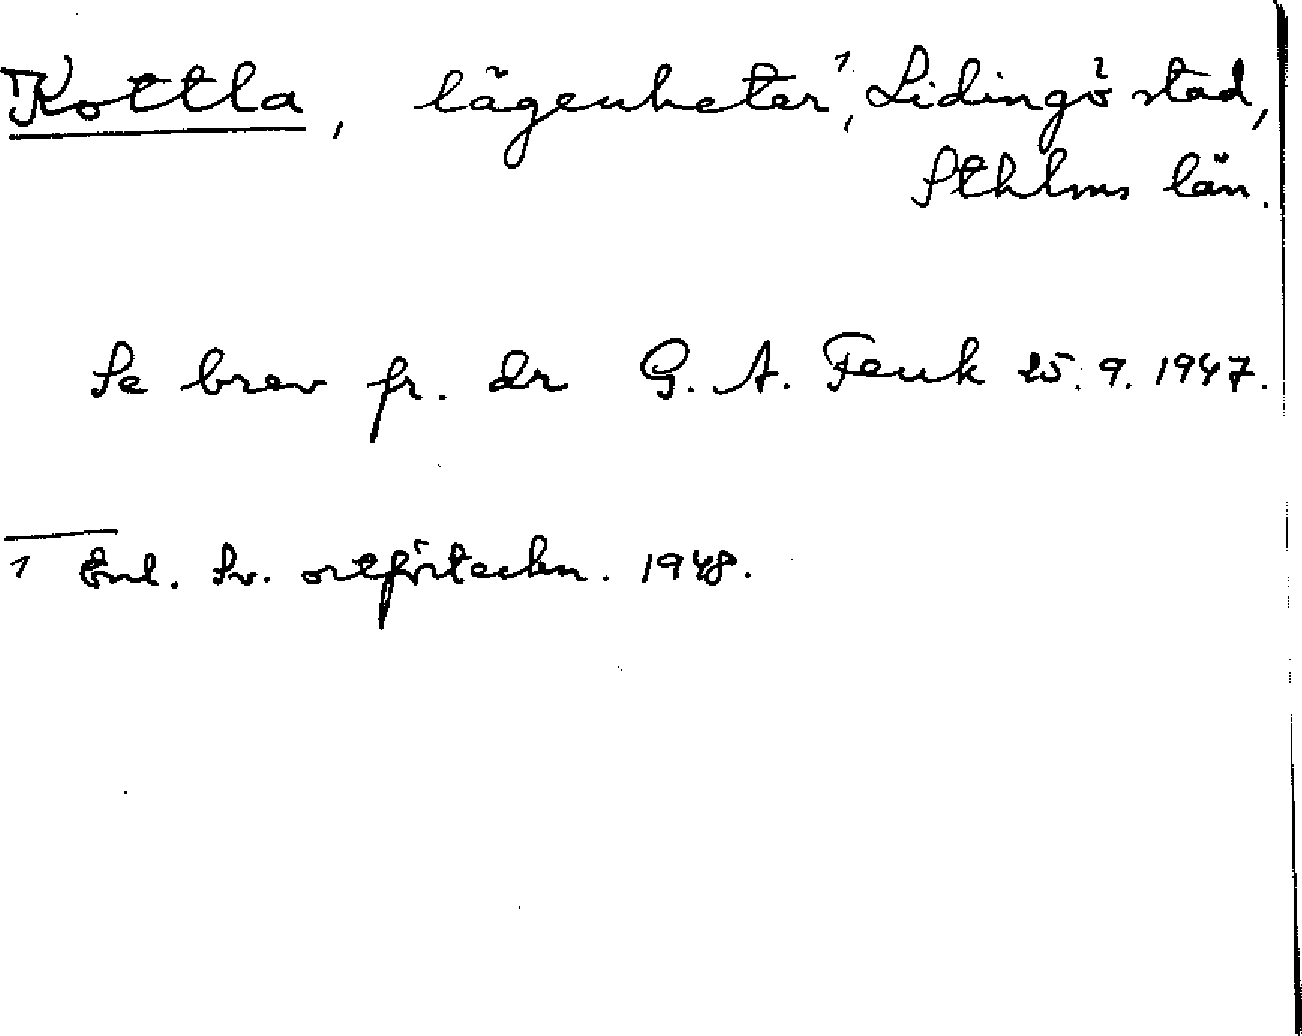 Kottla, lägenheter¹, Lidingö stad,
Sthlms län.
Se brev fr. dr G. A. Fenk 25.9.1947.
1 Enl. Sv. ortförteckn. 1948.